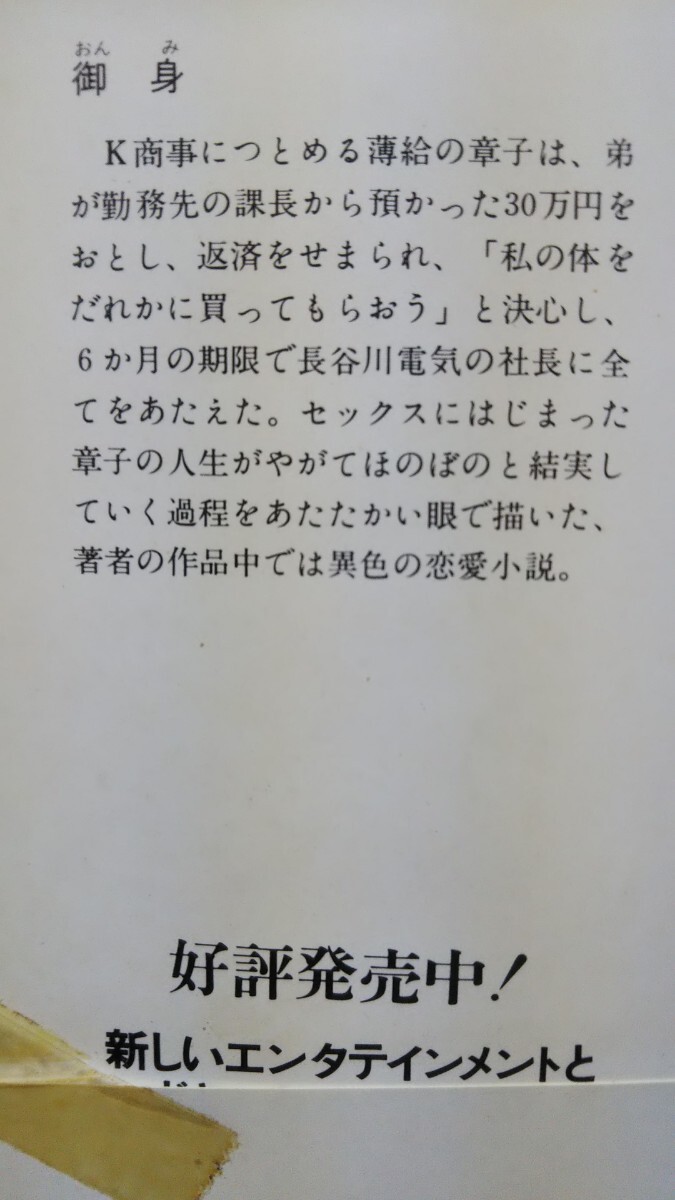 おん み
御 身
K商事につとめる薄給の章子は、弟
が勤務先の課長から預かった30万円を
おとし、返済をせまられ、「私の体を
だれかに買ってもらおう」と決心し、
6か月の期限で長谷川電気の社長に全
てをあたえた。セックスにはじまった
章子の人生がやがてほのぼのと結実し
ていく過程をあたたかい眼で描いた、
著者の作品中では異色の恋愛小説。
好評発売中!
新しいエンタテインメントと